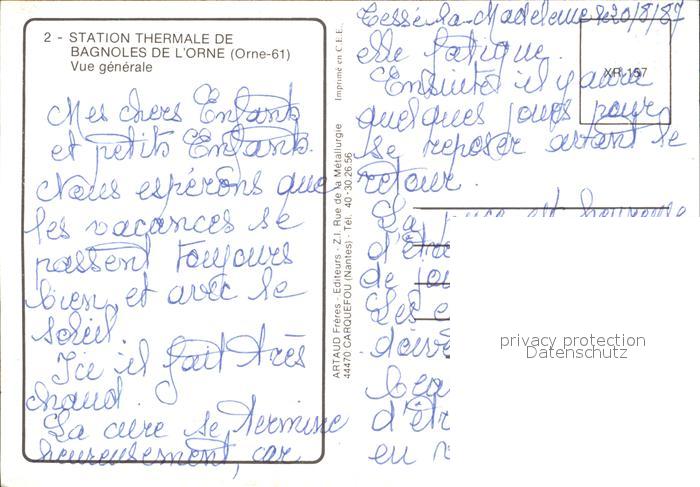 2 - STATION THERMALE DE
BAGNOLES DE L'ORNE (Orne-61)
Vue générale
Mes chers Enfants
et petits Enfants.
Nous espérons que
les vacances se
passent toujours
bien, et avec le
soleil.
Ici il fait très
chaud.
La cure se termine
heureusement, car
Imprimé en C.E.E.
ARTAUD Frères - Editeurs - Z.I. Rue de la Métallurgie
44470 CARQUEFOU (Nantes) - Tél. 40-30.26.56
Tessé-la-Madeleine le 20/8/87
XR 157
elle fatigue.
Ensuite il y aura
quelques jours pour
se reposer avant le
retour.
La
d'êtr
de jou
Les e
doive
beau
d'êtr
en v
privacy protection
Datenschutz